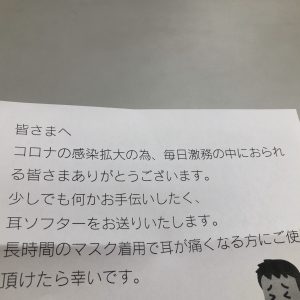 皆さまへ
コロナの感染拡大の為、毎日激務の中におられ
る皆さまありがとうございます。
少しでも何かお手伝いしたく、
耳ソフターをお送りいたします。
長時間のマスク着用で耳が痛くなる方にご使
頂けたら幸いです。